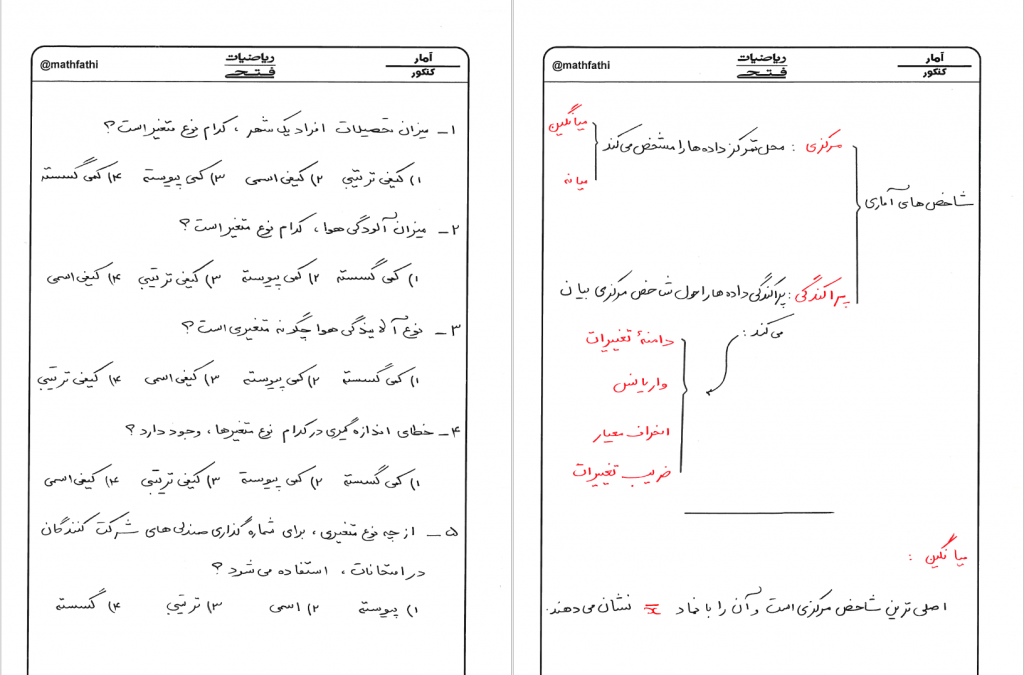 آمار
کنکور
ریاضیات
فتحی
@mathfathi
شاخص های آماری
مرکزی : محل تمرکز داده ها را مشخص می کند
میانگین
میانه
پراکندگی : پراکندگی داده ها را حول شاخص مرکزی بیان
می کند :
دامنهٔ تغییرات
واریانس
انحراف معیار
ضریب تغییرات
میانگین :
اصلی ترین شاخص مرکزی است و آن را با نماد x̄ نشان می دهند.
آمار
کنکور
ریاضیات
فتحی
@mathfathi
۱ـ میزان تحصیلات افراد یک شهر ، کدام نوع متغیر است؟
۱) کیفی ترتیبی ۲) کیفی اسمی ۳) کمی پیوسته ۴) کمی گسسته
۲ـ میزان آلودگی هوا ، کدام نوع متغیر است؟
۱) کمی گسسته ۲) کمی پیوسته ۳) کیفی ترتیبی ۴) کیفی اسمی
۳ـ نوع آلایندگی هوا چگونه متغیری است؟
۱) کمی گسسته ۲) کمی پیوسته ۳) کیفی اسمی ۴) کیفی ترتیبی
۴ـ خطای اندازه گیری در کدام نوع متغیرها ، وجود دارد؟
۱) کمی گسسته ۲) کمی پیوسته ۳) کیفی ترتیبی ۴) کیفی اسمی
۵ـ از چه نوع متغیری ، برای شماره گذاری صندلی های شرکت کنندگان
در امتحانات ، استفاده می شود؟
۱) پیوسته ۲) اسمی ۳) ترتیبی ۴) گسسته